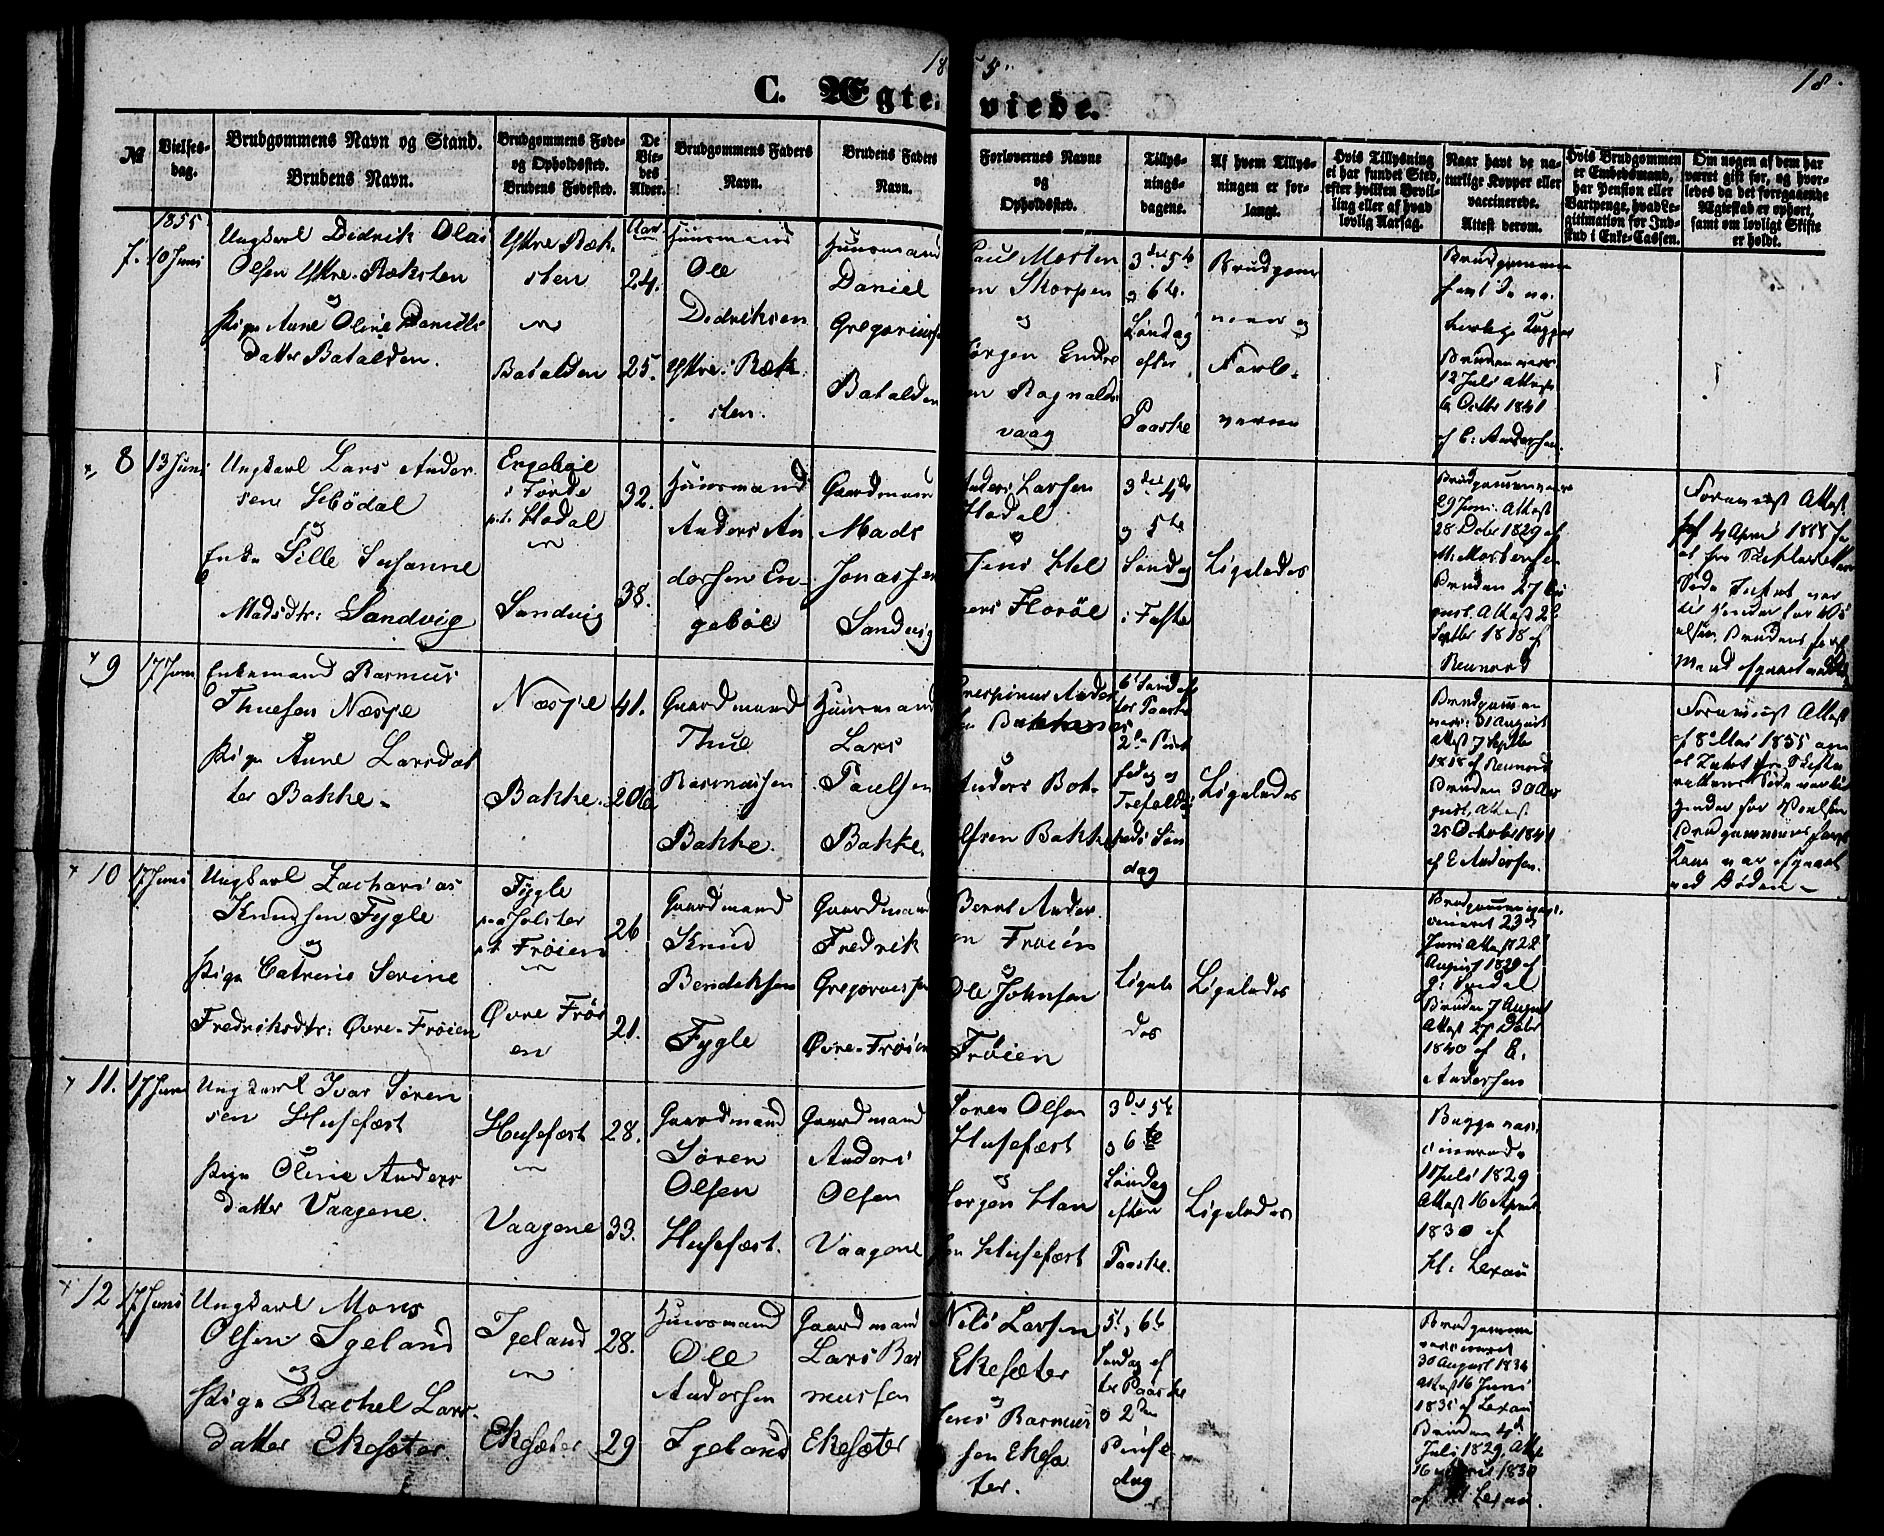 18 5
18
C. Ægteviede.
№
Vielsesdag.
Brudgommens Navn og Stand.
Brudens Navn.
Brudgommens Føde- og Opholdssted.
Brudens Fødested.
De Viedes Alder.
Brudgommens Faders Navn.
Brudens Faders Navn.
Forlovernes Navne
og
Opholdssted.
Tillysningsdagene.
Af hvem Tillysningen er forlangt.
Hvis Tillysning ei har fundet Sted, efter hvilken Bevilling eller af hvad lovlig Aarsag.
Naar havt de naturlige Kopper eller vaccinerede.
Attest derom.
Hvis Brudgommen er Embedsmand, har Pension eller Vartpenge, hvad Legitimation for Indskud i Enke-Cassen.
Om nogen af dem har været gift før, og hvorledes da det foregaaende Ægteskab er ophørt, samt om lovligt Skifte er holdt.
1855
7. 10 Juni
Ungkarl Didrik Olai
Olsen Yttre-Ræksten
og
Pige Anne Oline Daniels
datter Batalden.
Yttre Ræk
sten
Batalden
Aar
24.
25.
Huusmand
Ole
Didriksen
Yttre: Ræk
sten.
Huusmand
Daniel
Gregorius
Batalden
Paul Morten
en Skorpen
og
Jørgen Endre
en Ragnalds
vaag
3die 5te
og 6te
Søndag
efter
Paaske
Brudgom
men og
Forlo-
verne
Brudgommen
havt de na
turlige Kopper
Bruden vacc.
12 Juli Attest
6 Octbr 1841
af C. Andersen.
8 13 Juni
Ungkarl Lars Ander
sen Hødal
og
Enke Sille Susanne
Madsdtr: Sandvig
Engebøe
i Førde
p.t. Hødal
Sandvig
32.
38.
Huusmand
Anders An
dersen En-
gebøe
Gaardmand
Mads
Jonassen
Sandvig
Anders Larsen
Hødal
og
Jens Hel
Florøe
3die 4de
og 5te
Søndag
i Faste
Ligeledes
Brudgommen vacc
29 Juni. Attest
28 Decbr 1829 af
Bruden 27 Au
gust. Attest 26
Septbr 1818 af
Reumord
Foreviist Attest
af 4 April 1855
9 17 Juni
Enkemand Rasmus
Thuesen Næsje
Pige Anne Larsdat
ter Bakke-
Næsje
Bakke.
41.
20½
Gaardmand
Thue
Rasmussen
Bakke.
Huusmand
Lars
Paulsen
Bakke.
Crispinus Ander
sen Bakken
og
Anders Bot-
olfsen Bakke
6 Søndag ef
ter Paaske
2den Pint
sedag og
Trefoldig
heds Søn
dag
Ligeledes
Brudgommen
vacc: 31 August
Attest 7 Septbr
1818 af Reumord
Bruden 30 Au
gust. Attest
25 October 1841
af E Andersen.
Foreviist Attest
af 8 Mai 1855 om
at Intet fra Skifte
rettens Side var til
hinder for Vielsen
Brudgommens første
Kone var afgaaet
ved Døden -
10 17 Juni
Ungkarl Zacharias
Knudsen Fygle
og
Pige Catrine Serine
Fredriksdtr: Øvre-Frøien
Fygle
p.t. Frøien
Øvre Frøi
en
26
21.
Gaardmand
Knud
Bendiksen
Fygle
Gaardmand
Fredrik
Gregoriussen
Øvre-Frøien
Bernt Ander
en Frøien
og
Ole Johnsen
Frøien
Ligele
des
Ligeledes
Brudgommen vac
cineret 23de
Juni Attest 28
August 1829 af
Bruden 7 August
Attest 27 Decbr
1840 af E.
Andersen
11. 17 Juni
Ungkarl Ivar Søren
sen Husefæst
og
Pige Oline Anders
datter Vaagene.
Husefæst
Vaagene
28.
33.
Gaardmand
Søren
Olsen
Husefæst.
Gaardmand
Anders
Olsen
Vaagene
Søren Olsen
Husefæst
og
Jørgen Han
sen Husefæst
3die 5te
og 6te
Søndag
efter
Paaske.
Ligeledes
Begge vac-
cinerede
11 Juli 1829
Attest 16 April
1830 af
H. Lexau
12 17 Juni
Ungkarl Mons
Olsen Igeland
og
Pige Rachel Lars-
datter Ekesæter.
Igeland
Ekesæter
28.
29
Huusmand
Ole
Andersen
Igeland
Gaardmand
Lars Ras
mussen
Ekesæter
Nils Larsen
Ekesæter
og
Jens Rasmus
sen Ekesæ
ter.
5te, 6te
Søndag ef
ter Paaske
og 2den
Pintse
dag
Brudgommen
vaccineret
30 August 1834
Attest 16 Juni
1835 af Lexau
Bruden 4de
Juli 1829, Attest
16 April 1830
af H Lexau.